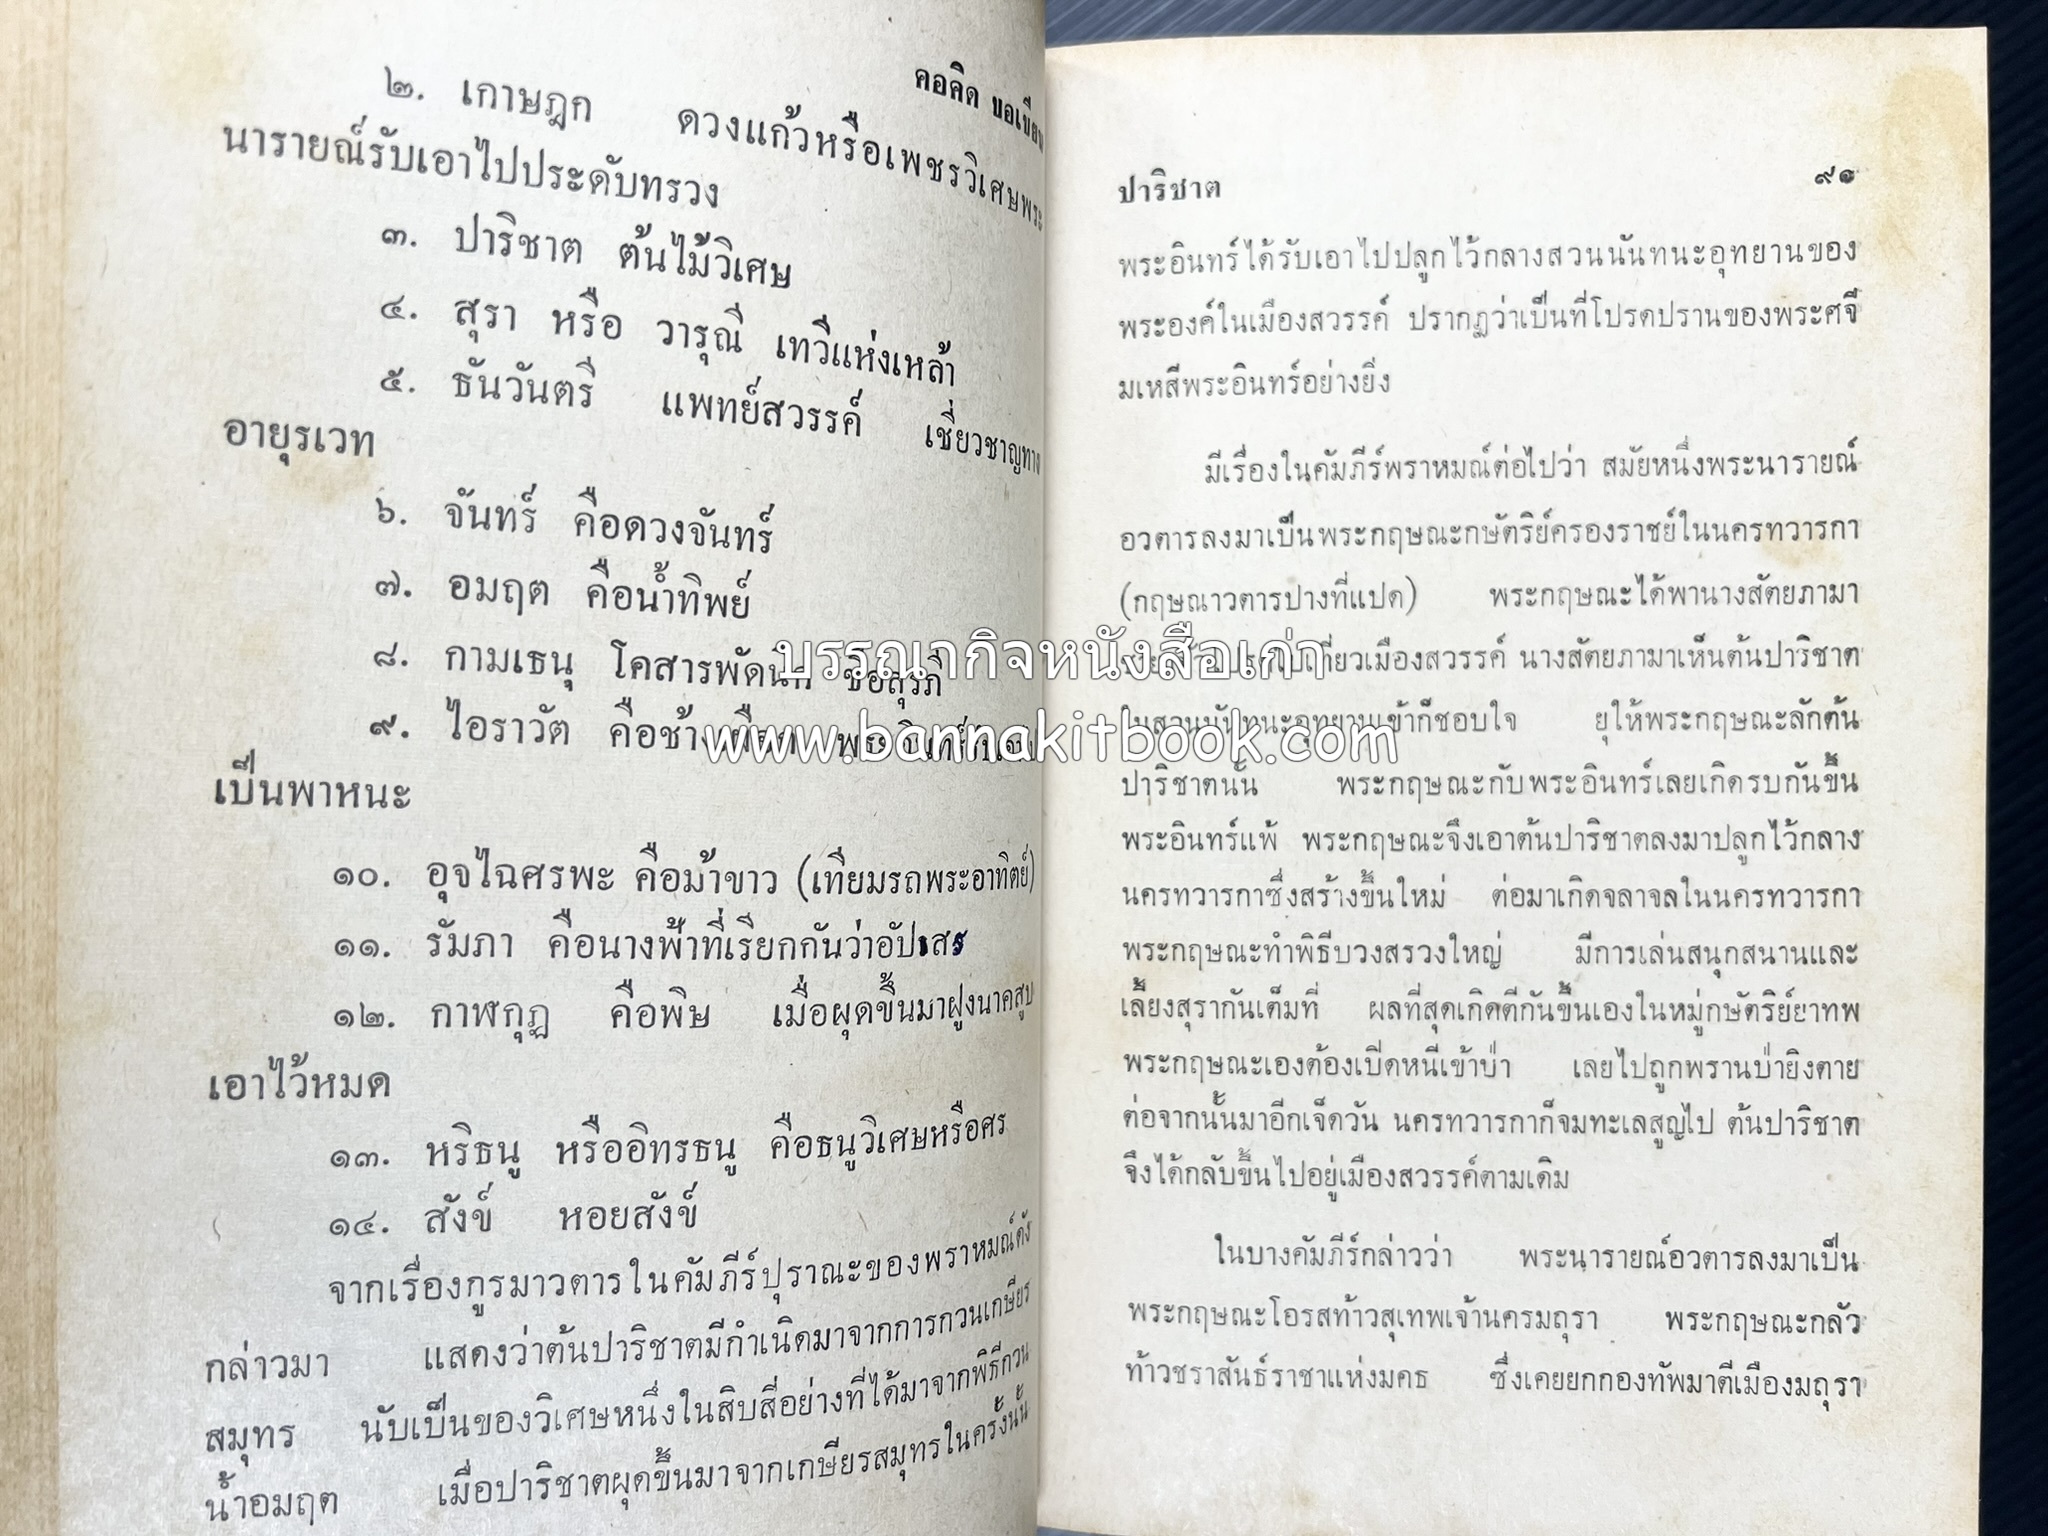 คอคิด ขอเขียน
๒. เกาษฎก ดวงแก้วหรือเพชรวิเศษพระ
นารายณ์รับเอาไปประดับทรวง
๓. ปาริชาต ต้นไม้วิเศษ
๔. สุรา หรือ วารุณี เทวีแห่งเหล้า
๕. ธันวันตรี แพทย์สวรรค์ เชี่ยวชาญทาง
อายุรเวท
๖. จันทร์ คือดวงจันทร์
๗. อมฤต คือน้ำทิพย์
๘. กามเธนุ โคสารพัดนึก ชื่อสุรภี
๙. ไอราวัต คือช้าง
เป็นพาหนะ
๑๐. อุจไฉศรพะ คือม้าขาว (เทียมรถพระอาทิตย์)
๑๑. รัมภา คือนางฟ้าที่เรียกกันว่าอัปเสร
๑๒. กาฬกุฏ คือพิษ เมื่อผุดขึ้นมาฝูงนาคสูบ
เอาไว้หมด
๑๓. หริธนู หรืออิทรธนู คือธนูวิเศษหรือศร
๑๔. สังข์ หอยสังข์
จากเรื่องกูรมาวตารในคัมภีร์ปุราณะของพราหมณ์ดัง
กล่าวมา แสดงว่าต้นปาริชาตมีกำเนิดมาจากการกวนเกษียร
สมุทร นับเป็นของวิเศษหนึ่งในสิบสี่อย่างที่ได้มาจากพิธีกวน
น้ำอมฤต เมื่อปาริชาตผุดขึ้นมาจากเกษียรสมุทรในครั้งนั้น
ปาริชาต ๙๑
พระอินทร์ได้รับเอาไปปลูกไว้กลางสวนนันทนะอุทยานของ
พระองค์ในเมืองสวรรค์ ปรากฏว่าเป็นที่โปรดปรานของพระศจี
มเหสีพระอินทร์อย่างยิ่ง
มีเรื่องในคัมภีร์พราหมณ์ต่อไปว่า สมัยหนึ่งพระนารายณ์
อวตารลงมาเป็นพระกฤษณะกษัตริย์ครองราชย์ในนครทวารกา
(กฤษณาวตารปางที่แปด) พระกฤษณะได้พานางสัตยภามา
เที่ยวเมืองสวรรค์ นางสัตยภามาเห็นต้นปาริชาต
ในสวนนันทนะอุทยานเข้าก็ชอบใจ ยุให้พระกฤษณะลักต้น
ปาริชาตนั้น พระกฤษณะกับพระอินทร์เลยเกิดรบกันขึ้น
พระอินทร์แพ้ พระกฤษณะจึงเอาต้นปาริชาตลงมาปลูกไว้กลาง
นครทวารกาซึ่งสร้างขึ้นใหม่ ต่อมาเกิดจลาจลในนครทวารกา
พระกฤษณะทำพิธีบวงสรวงใหญ่ มีการเล่นสนุกสนานและ
เลี้ยงสุรากันเต็มที่ ผลที่สุดเกิดตีกันขึ้นเองในหมู่กษัตริย์ยาทพ
พระกฤษณะเองต้องเปิดหนีเข้าป่า เลยไปถูกพรานป่ายิงตาย
ต่อจากนั้นมาอีกเจ็ดวัน นครทวารกาก็จมทะเลสูญไป ต้นปาริชาต
จึงได้กลับขึ้นไปอยู่เมืองสวรรค์ตามเดิม
ในบางคัมภีร์กล่าวว่า พระนารายณ์อวตารลงมาเป็น
พระกฤษณะโอรสท้าวสุเทพเจ้านครมถุรา พระกฤษณะกลัว
ท้าวชราสันธ์ราชาแห่งมคธ ซึ่งเคยยกกองทัพมาตีเมืองมถุรา
บรรณากิจหนังสือเก่า
www.bannakitbook.com